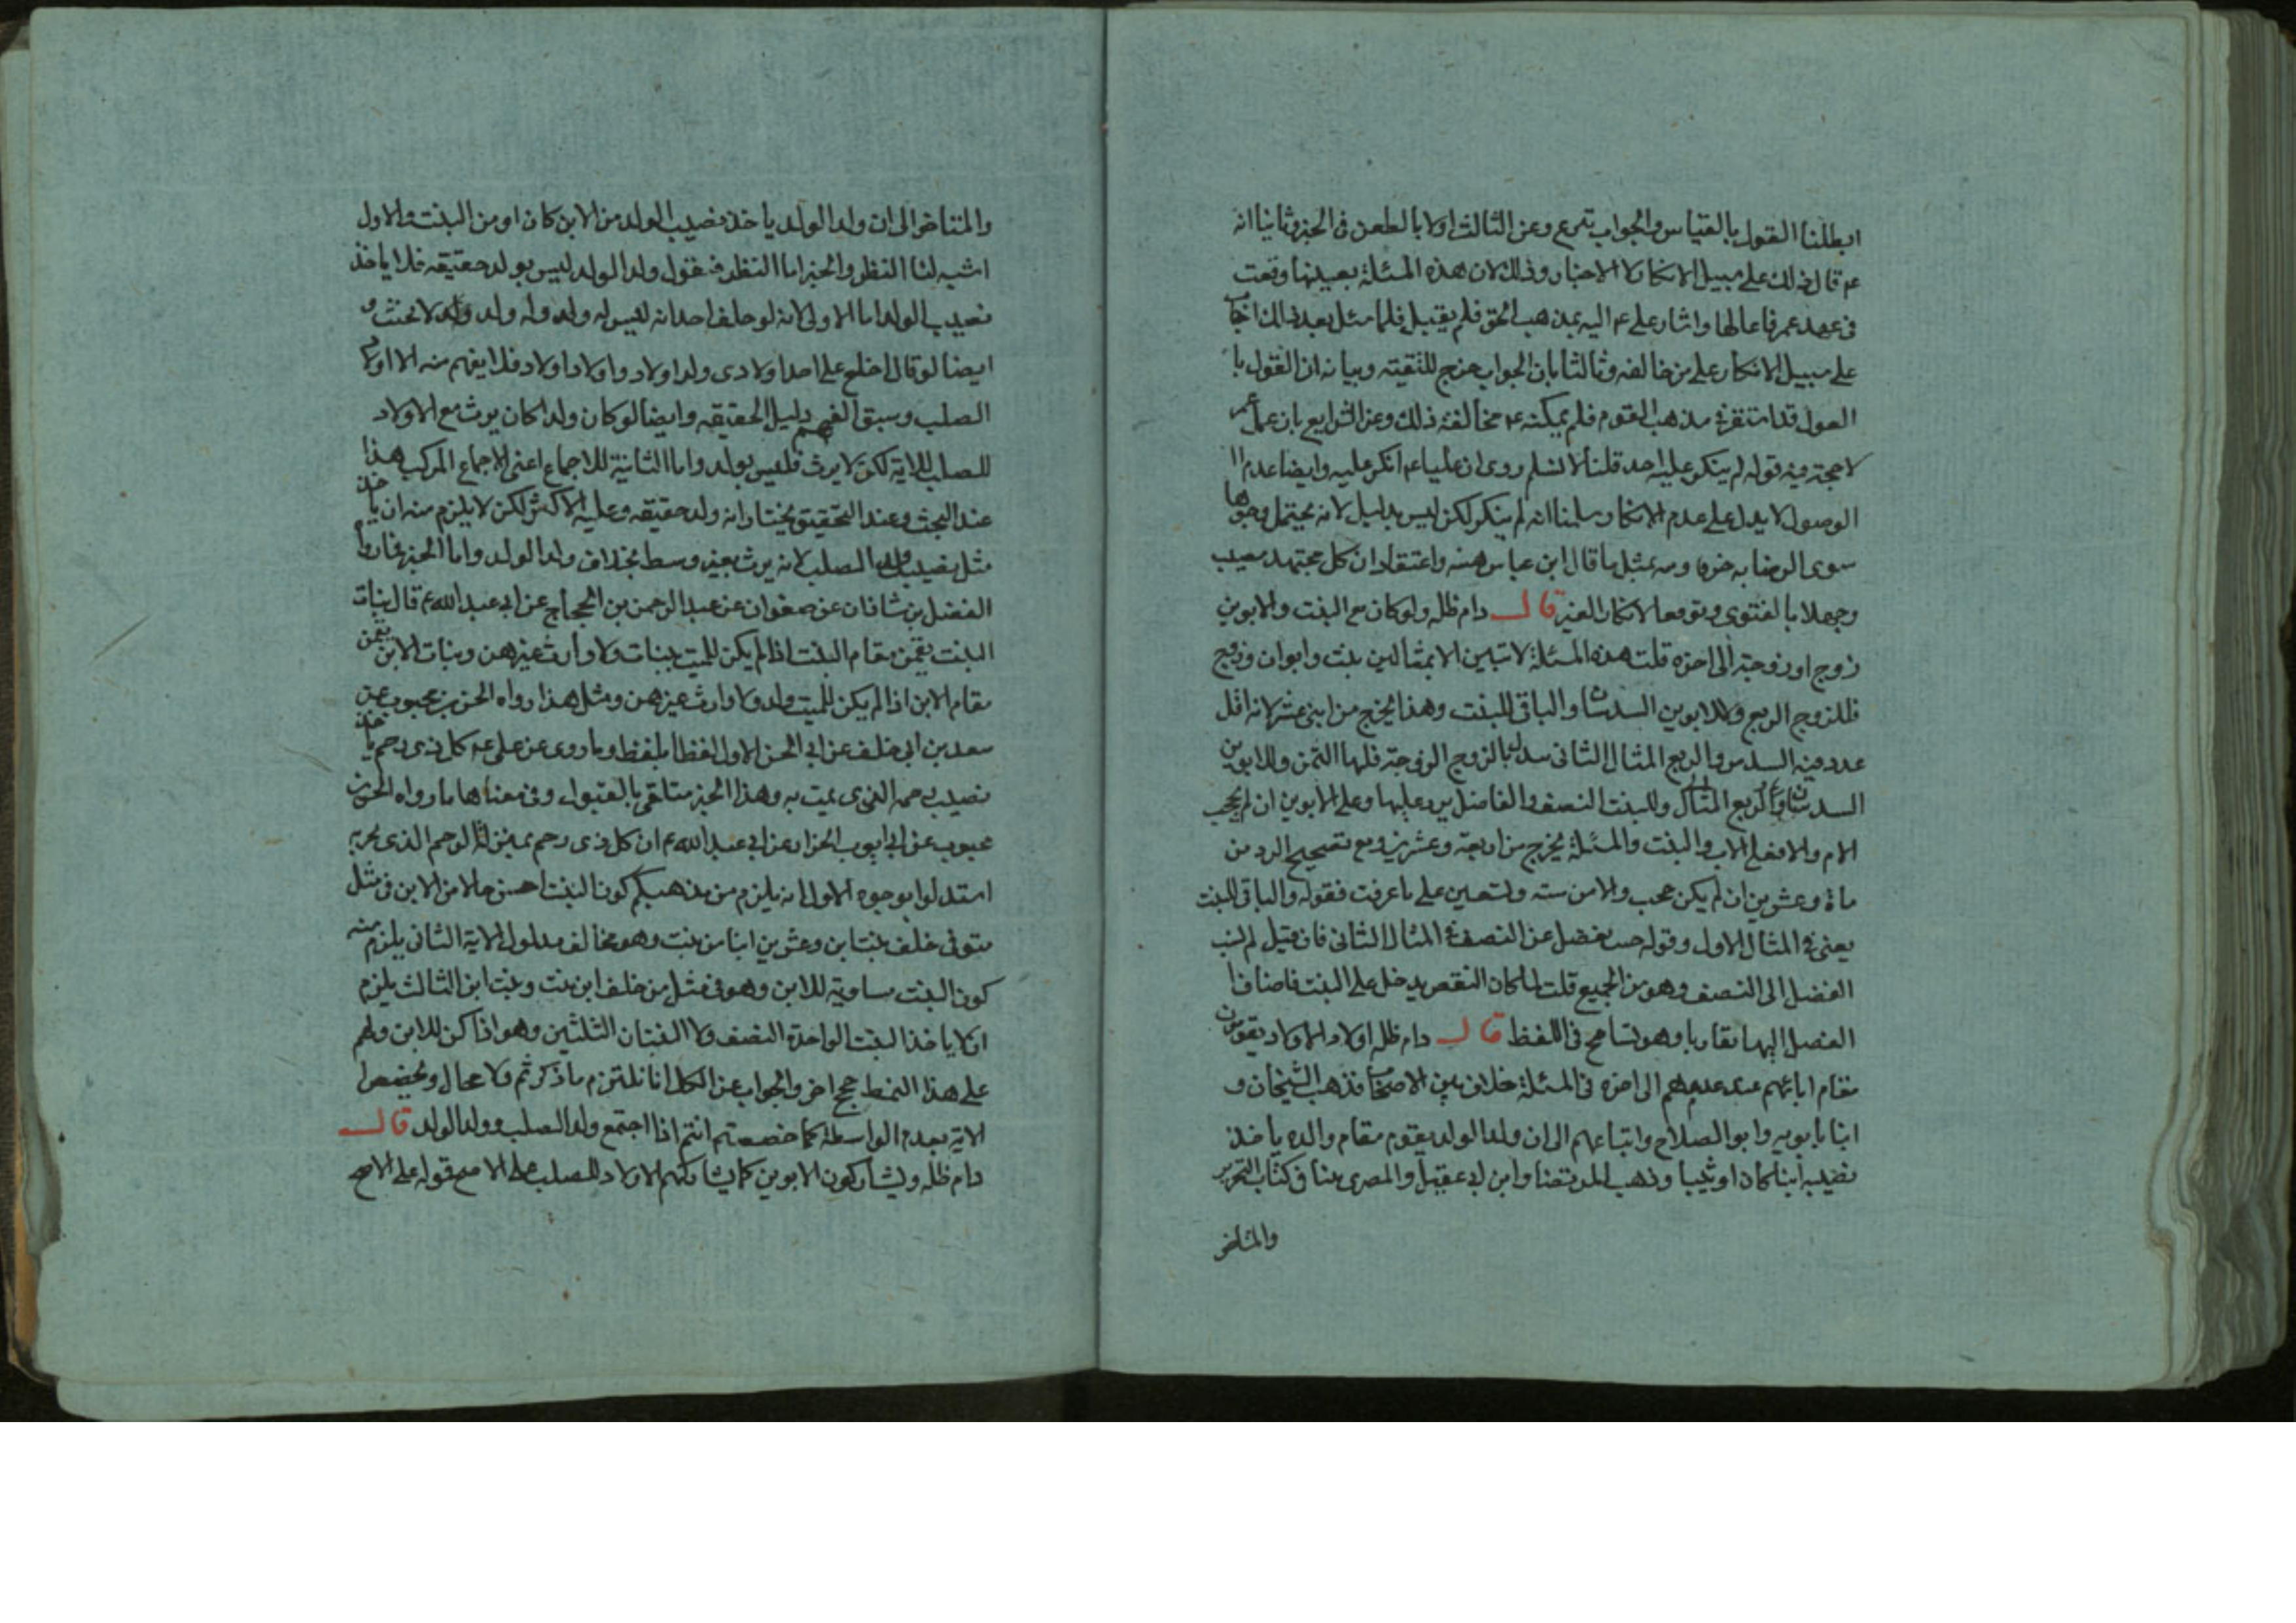 ابطلنا القول بالقياس والجواب تمرع وعن الثالث اولا بالطعن فى الخبر وثانيا انه
عم قال ذلك على سبيل الانكار لا الاخبار وذلك لان هذه المسئلة بعينها وقعت
فى عهد عمر فاعالها واشار على عم اليه بمذهب الحق فلم يقبل فلما سئل بعد ذلك اجاب
على سبيل الانكار على من خالفه وثالثا بان الجواب خرج للتقية وبيانه ان القول با
العول قد استقر فى مذهب القوم فلم يمكنه عم مخالفة ذلك وعن الرابع بان عمل عمر
لا حجة فيه قوله لم ينكر عليه احد قلنا لا نسلم روى ان عليا عم انكر عليه وايضا عدم ا
الوصول لا يدل على عدم الانكار سلمنا انه لم ينكر لكن ليس بدليل لانه يحتمل وجوها
سوى الرضا به خوفا ومهـ بمثل ما قال ابن عباس هبته واعتقاد ان كل مجتهد مصيب
وجهلا بالفتوى وتوقعا لانكار الغير قال دام ظله ولو كان مع البنت والابوين
زوج او زوجة الى اخره قلت هذه المسئلة لا تتبين الا بمثالين بنت وابوان وزوج
فللزوج الربع وللابوين السدسان والباقى للبنت وهذا يخرج من اثنى عشر لانه اقل
عدد فيه السدس والربع المثال الثانى بدلنا بالزوج الزوجة فلها الثمن وللابوين
السدسان وللبنت النصف والفاضل يرد عليها وعلى الابوين ان لم يحجب
الام والا فعلى الاب والبنت والمسئلة يخرج من اربعة وعشرين ومع تصحيح الرد من
ماة وعشرين ان لم يكن محجب والا من ستة وتسعين على ما عرفت فقوله والباقى للبنت
يعنى فى المثال الاول وقوله حيث يفضل عن النصف فى المثال الثانى فان قيل لم نسب
الفضل الى النصف وهو من الجميع قلت لما كان النقص يدخل على البنت فاضاف ا
الفضل اليها تقاربا وهو تسامح فى اللفظ قال دام ظله اولاد الاولاد يقومون
مقام ابائهم عند عدمهم الى اخره فى المسئلة خلاف بين الاصحاب فذهب الشيخان و
ابنا بابويه وابو الصلاح واتباعهم الى ان ولد الولد يقوم مقام والده ياخذ
نصيبه ابنا كان او بنتا وذهب المرتضى وابن ابى عقيل والمصرى منا فى كتاب التحرير
والمتاخر
والمتاخر الى ان ولد الولد ياخذ نصيب الولد من الابن كان او من البنت والاول
اشبه لنا النظر والخبر اما النظر فنقول ولد الولد ليس بولد حقيقة فلا ياخذ
نصيب الولد اما الاولى لانه لو حلف احد انه ليس له ولد وله ولد ولد لا يحنث و
ايضا لو قال اخلع على احد اولادى وله اولاد واولاد اولاد فلا يفهم منه الا اولاد
الصلب وسبق الفهم دليل الحقيقه وايضا لو كان ولدا كان يرث مع الاولاد
للصلب للاية لكن لا يرث فليس بولد واما الثانية للاجماع اعنى الاجماع المركب هذا
عند البحث وعند التحقيق يختار انه ولد حقيقه وعليه الاكثر لكن لا يلزم منه ان ياخذ
مثل نصيب ولد الصلب لانه يرث بغير وسط بخلاف ولد الولد واما الخبر فما رواه
الفضل بن شاذان عن صفوان عن عبد الرحمن بن الحجاج عن ابى عبد الله عم قال بنات
البنت يقمن مقام البنت اذا لم يكن للميت بنات ولا وارث غيرهن وبنات الابن يقمن
مقام الابن اذا لم يكن للميت ولد ولا وارث غيرهن ومثل هذا رواه الحسن بن محبوب عن
سعد بن ابى خلف عن ابى الحسن الاول لفظا بلفظ وما روى عن على عم كل ذى رحم ياخذ
نصيب رحمه الذى يمت به وهذا الخبر متلقى بالقبول وفى معناها ما رواه الحسن بن
محبوب عن ابى ايوب الخزاز عن ابى عبد الله عم ان كل ذى رحم بمنزلة الرحم الذى يجربه
استدلوا بوجوه الاول انه يلزم من مذهبكم كون البنت احسن حالا من الابن فى مثل
متوفى خلف بنت ابن وعشرين ابنا من بنت وهو مخالف مدلول الاية الثانى يلزم منه
كون البنت مساوية للابن وهو فى مثل من خلف ابن بنت وبنت ابن الثالث يلزم
ان لا ياخذ البنت الواحدة النصف ولا البنتان الثلثين وهو اذا كن للابن ولهم
على هذا النمط حجج اخر والجواب عن الكل انا نلتزم ما ذكرتم ولا محال ونخصص ا
الاية بعدم الواسطة كما خصصتم انتم اذا اجتمع ولد الصلب وولد الولد قال
دام ظله ويشاركون الابوين كما يشاركهم الاولاد للصلب على الاصح قوله على الاصح